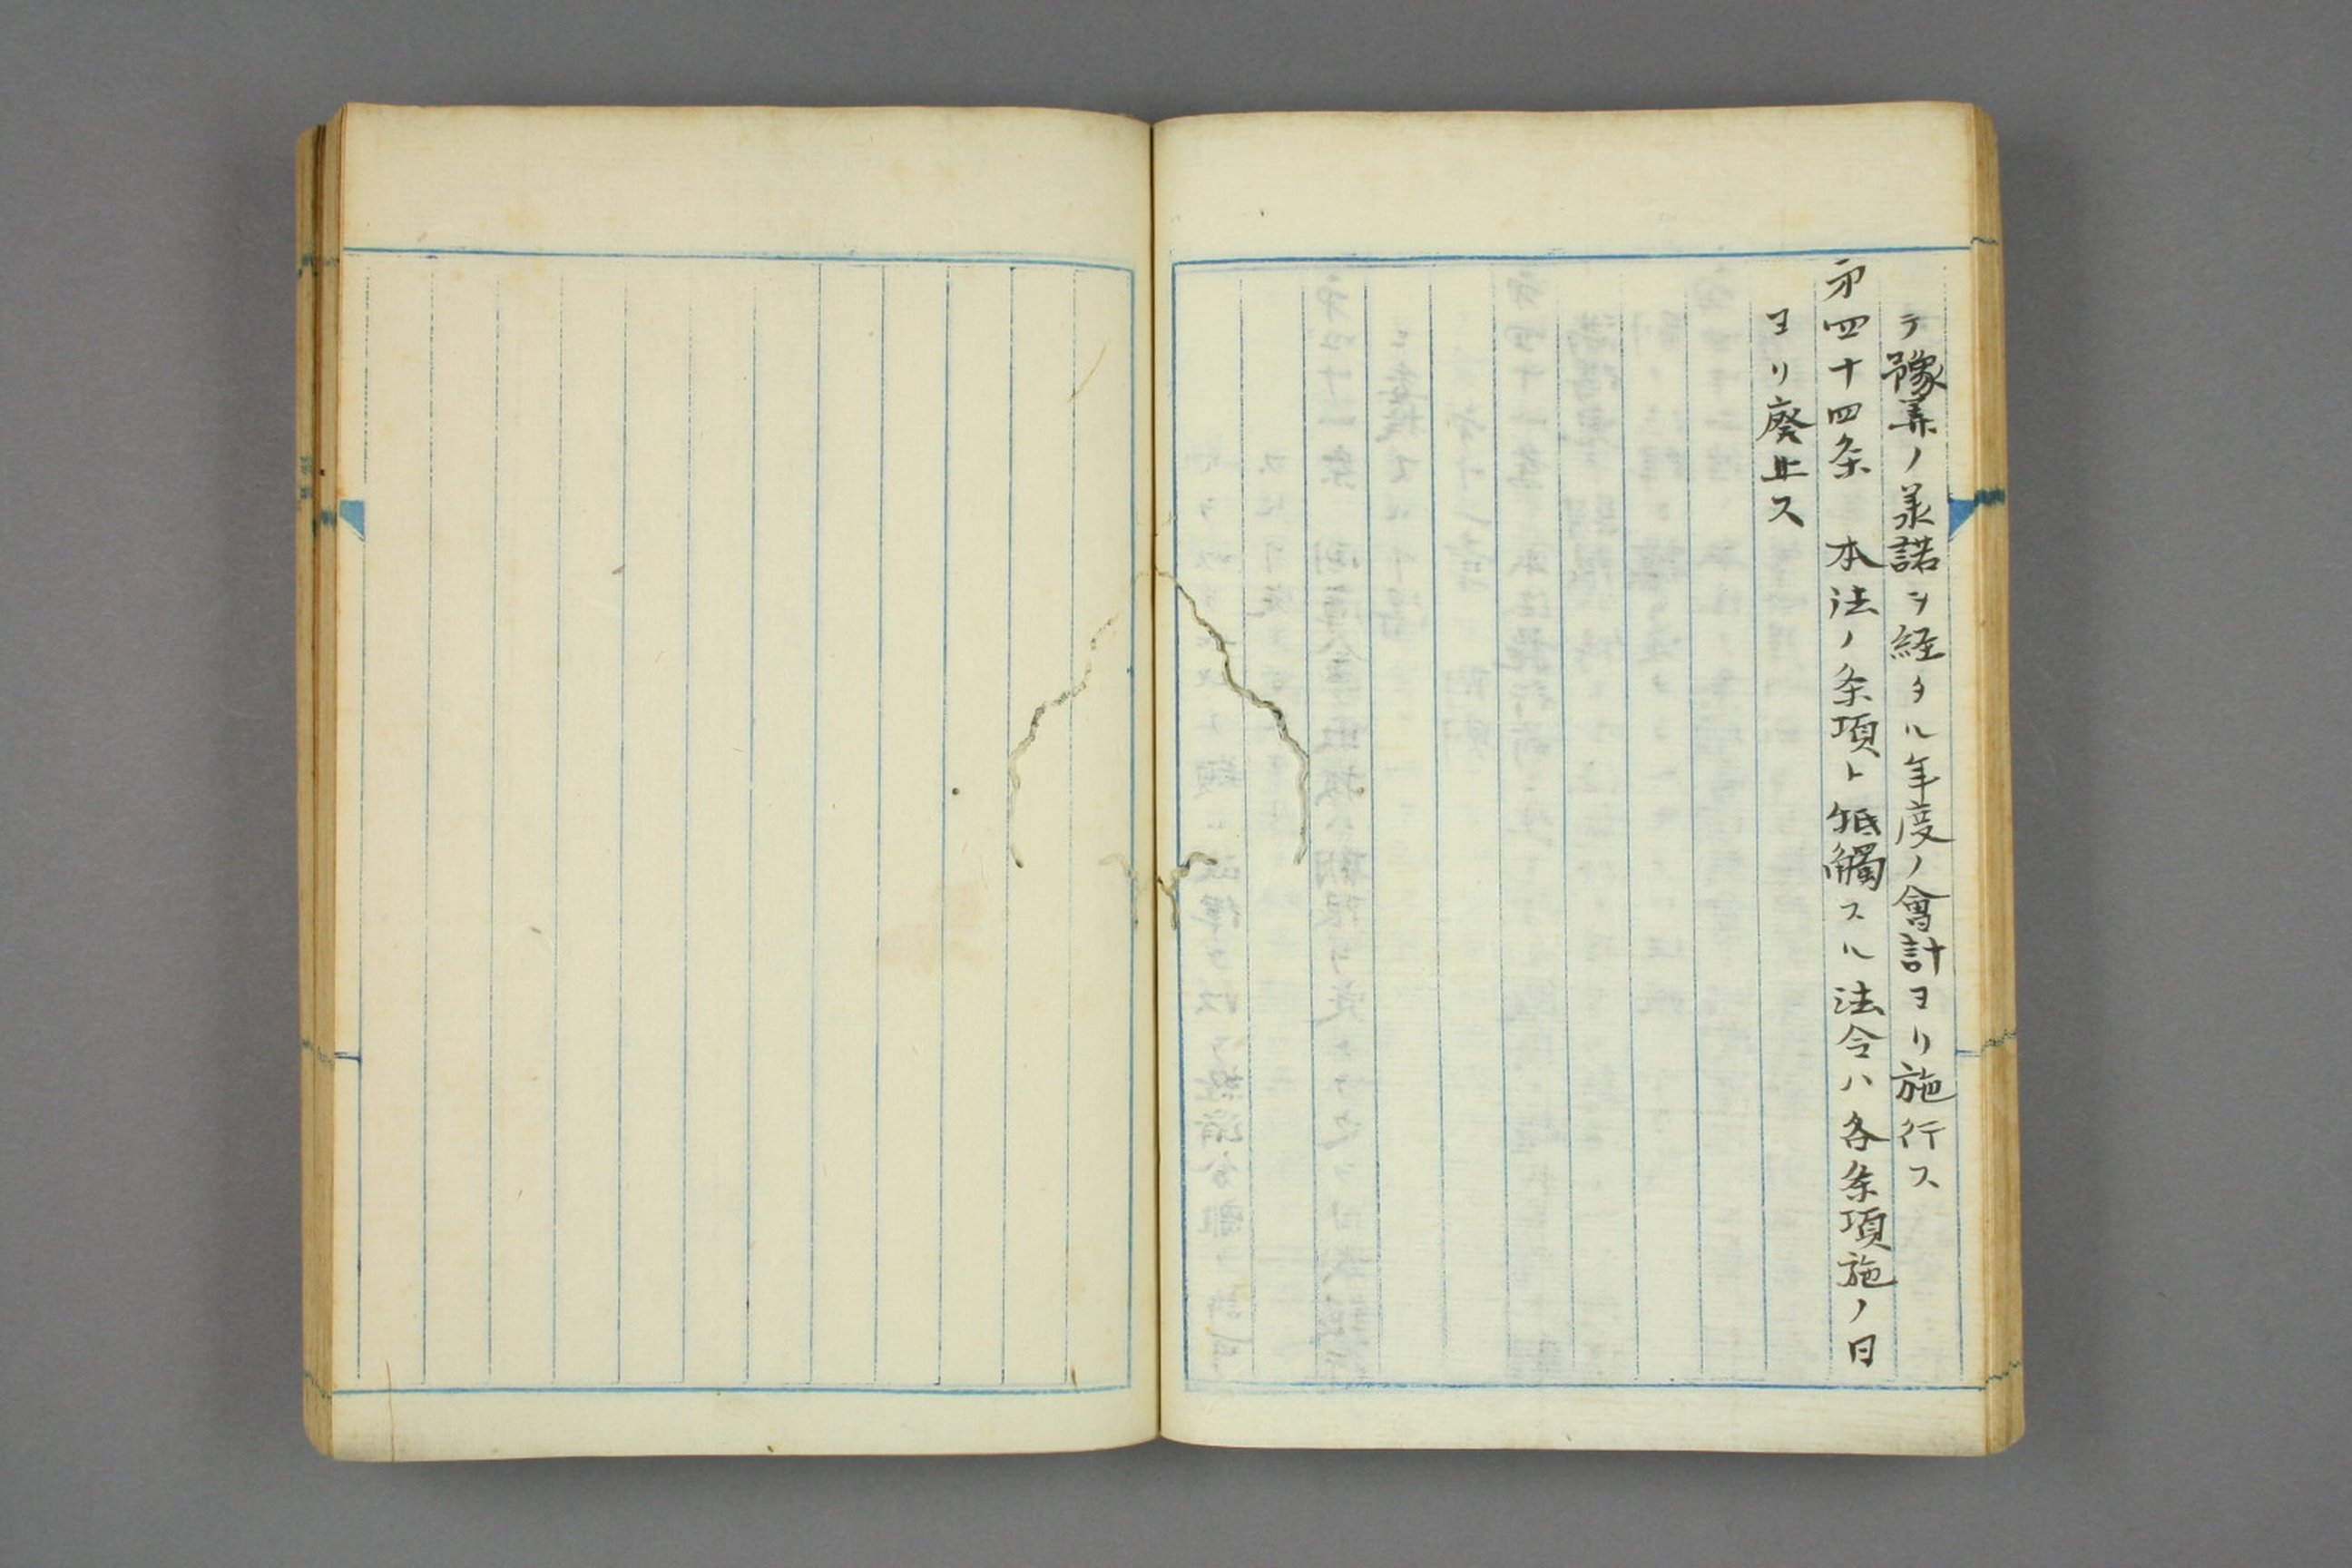 テ豫算ノ承諾ヲ経タル年度ノ會計ヨリ施行ス
第四十四条　本法ノ条項ト牴觸スル法令ハ各条項施ノ日
ヨリ廢止ス